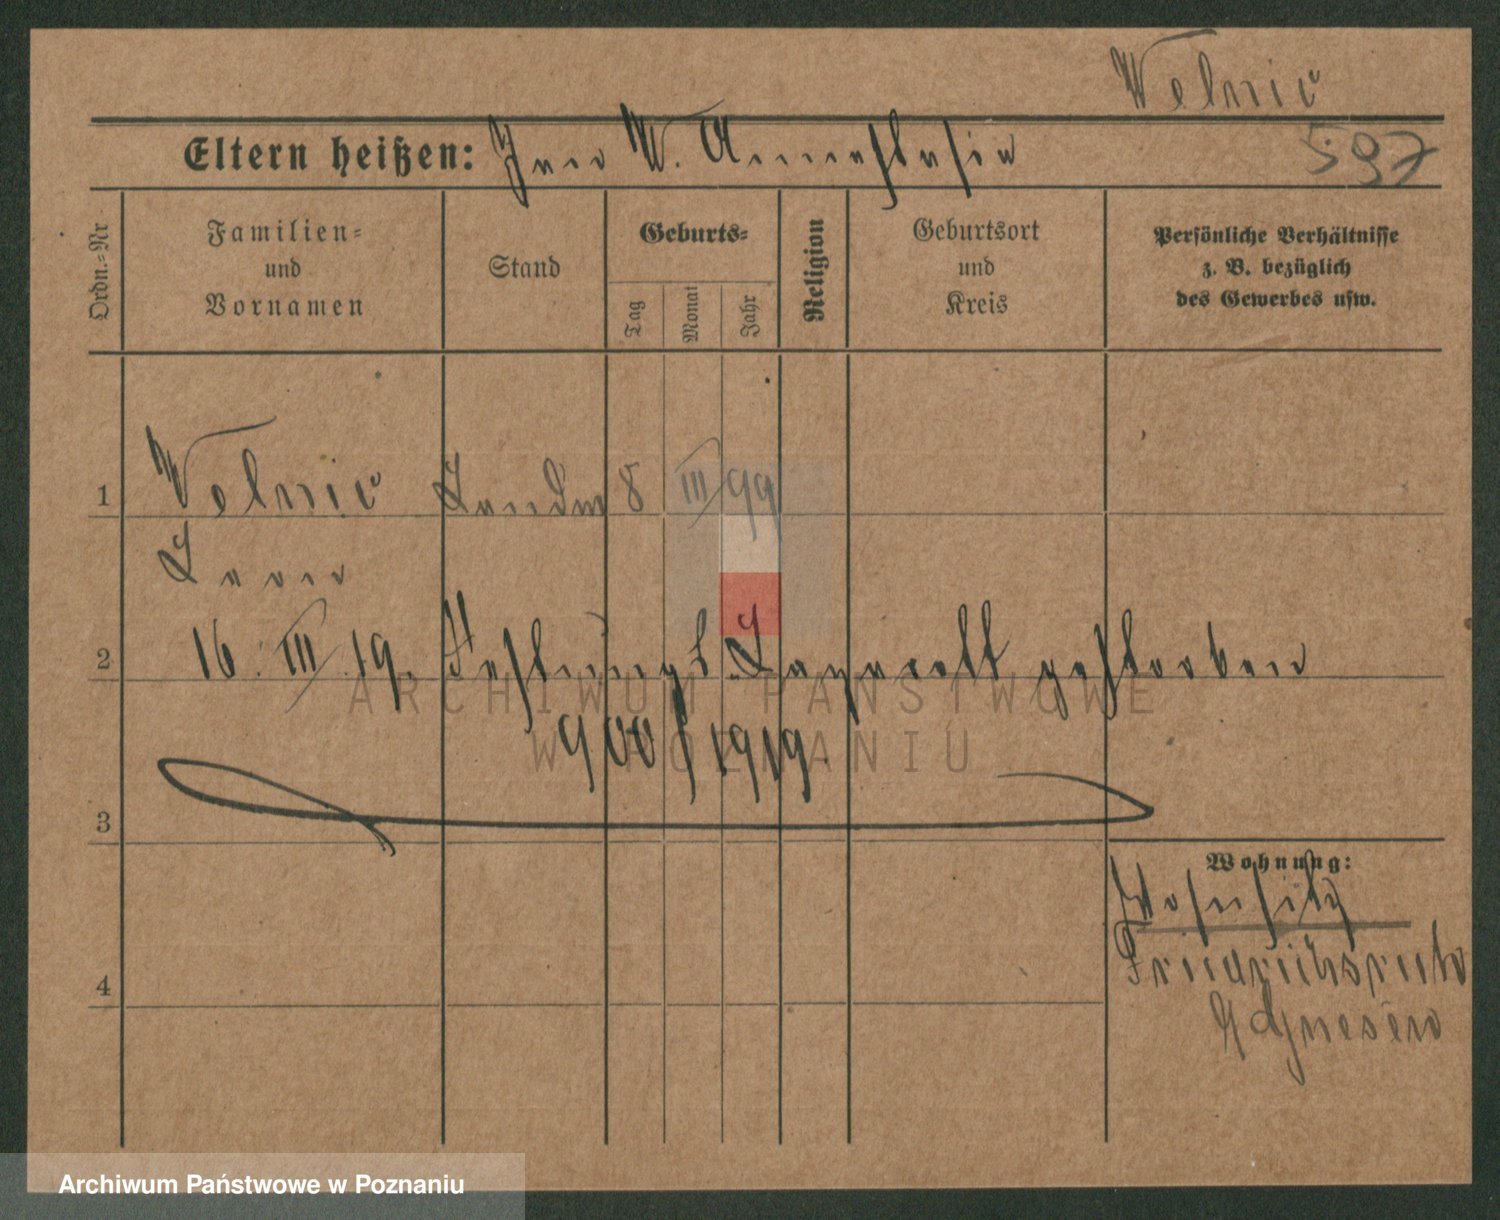 Welnic
Eltern heißen: W.
597
Ordn.-Nr
Familien- und Vornamen
Stand
Geburts-
Tag
Monat
Jahr
Religion
Geburtsort und Kreis
Persönliche Verhältnisse z. B. bezüglich des Gewerbes usw.
1 Welnic Landw 8 III 99
Leon
2 16. III 19. Festungs Lazarett gestorben
900/1919.
3
Wohnung:
4
Gnesen
ARCHIWUM PAŃSTWOWE
W POZNANIU
Archiwum Państwowe w Poznaniu